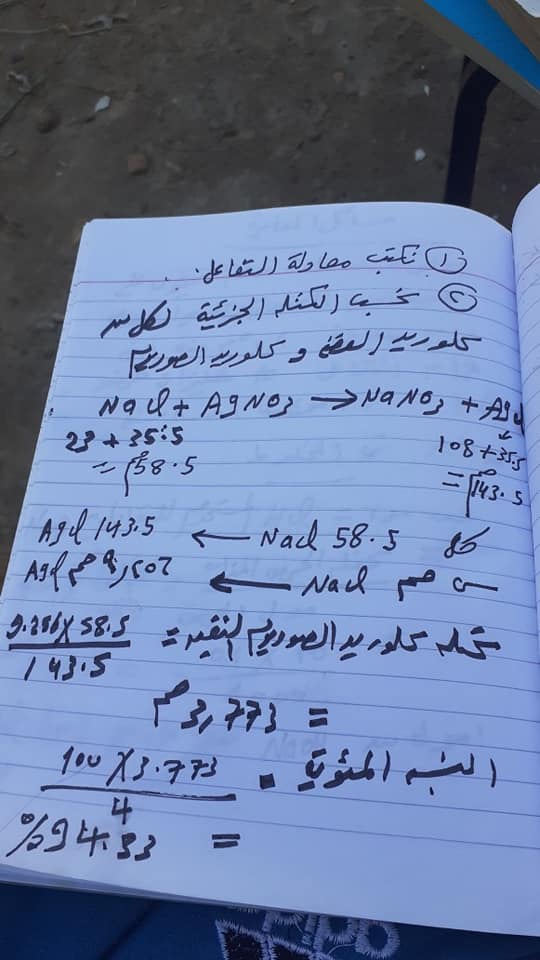 ① نكتب معادلة التفاعل.
② نحسب الكتلة الجزئية لكل من
كلوريد الفضة و كلوريد الصوديوم
NaCl + AgNO3 → NaNO3 + AgCl
23 + 35.5
108 + 35.5
= 58.5 جم
= 143.5 جم
كل NaCl 58.5 ← AgCl 143.5
س جم NaCl ← AgCl جم
كتلة كلوريد الصوديوم النقيه = × 58.5
143.5
= 3,773 جم
النسبه المئوية = 100 × 3.773
4
= 94.33 %